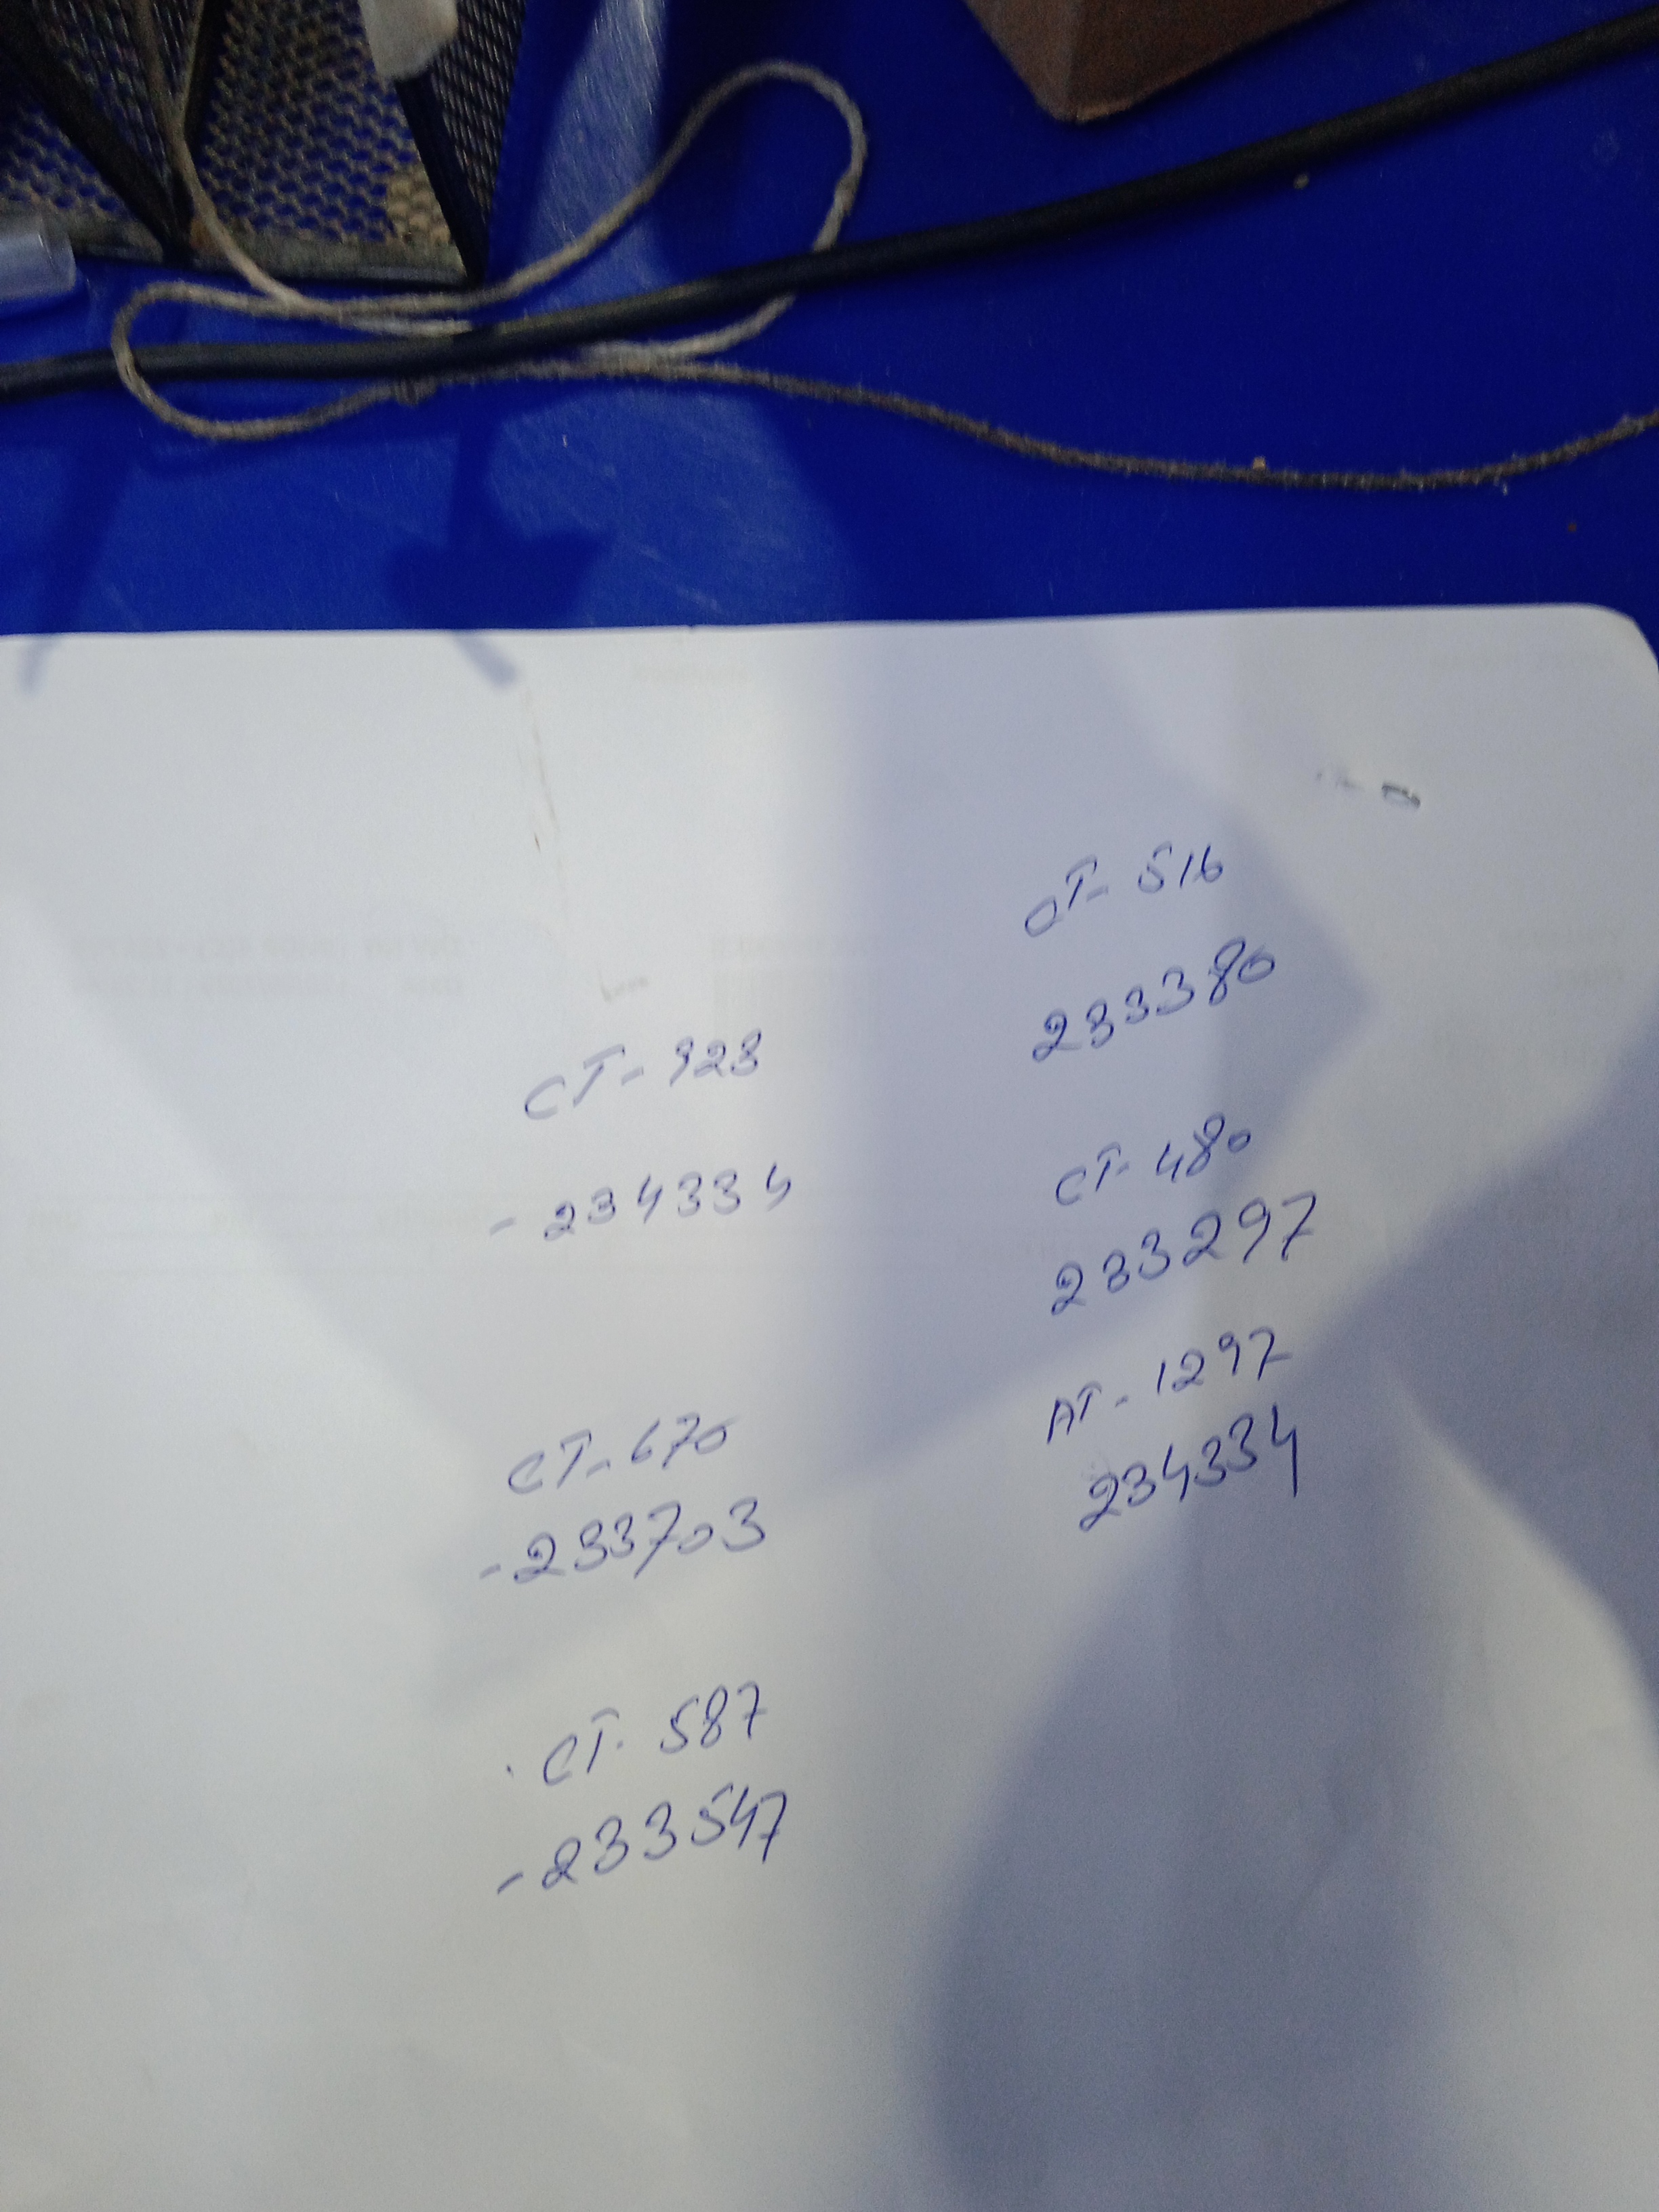 CT- 923
- 234334
CT- 670
- 233703
CT- 587
- 233547
OT- 516
233380
CT- 480
233297
AT- 1297
234334